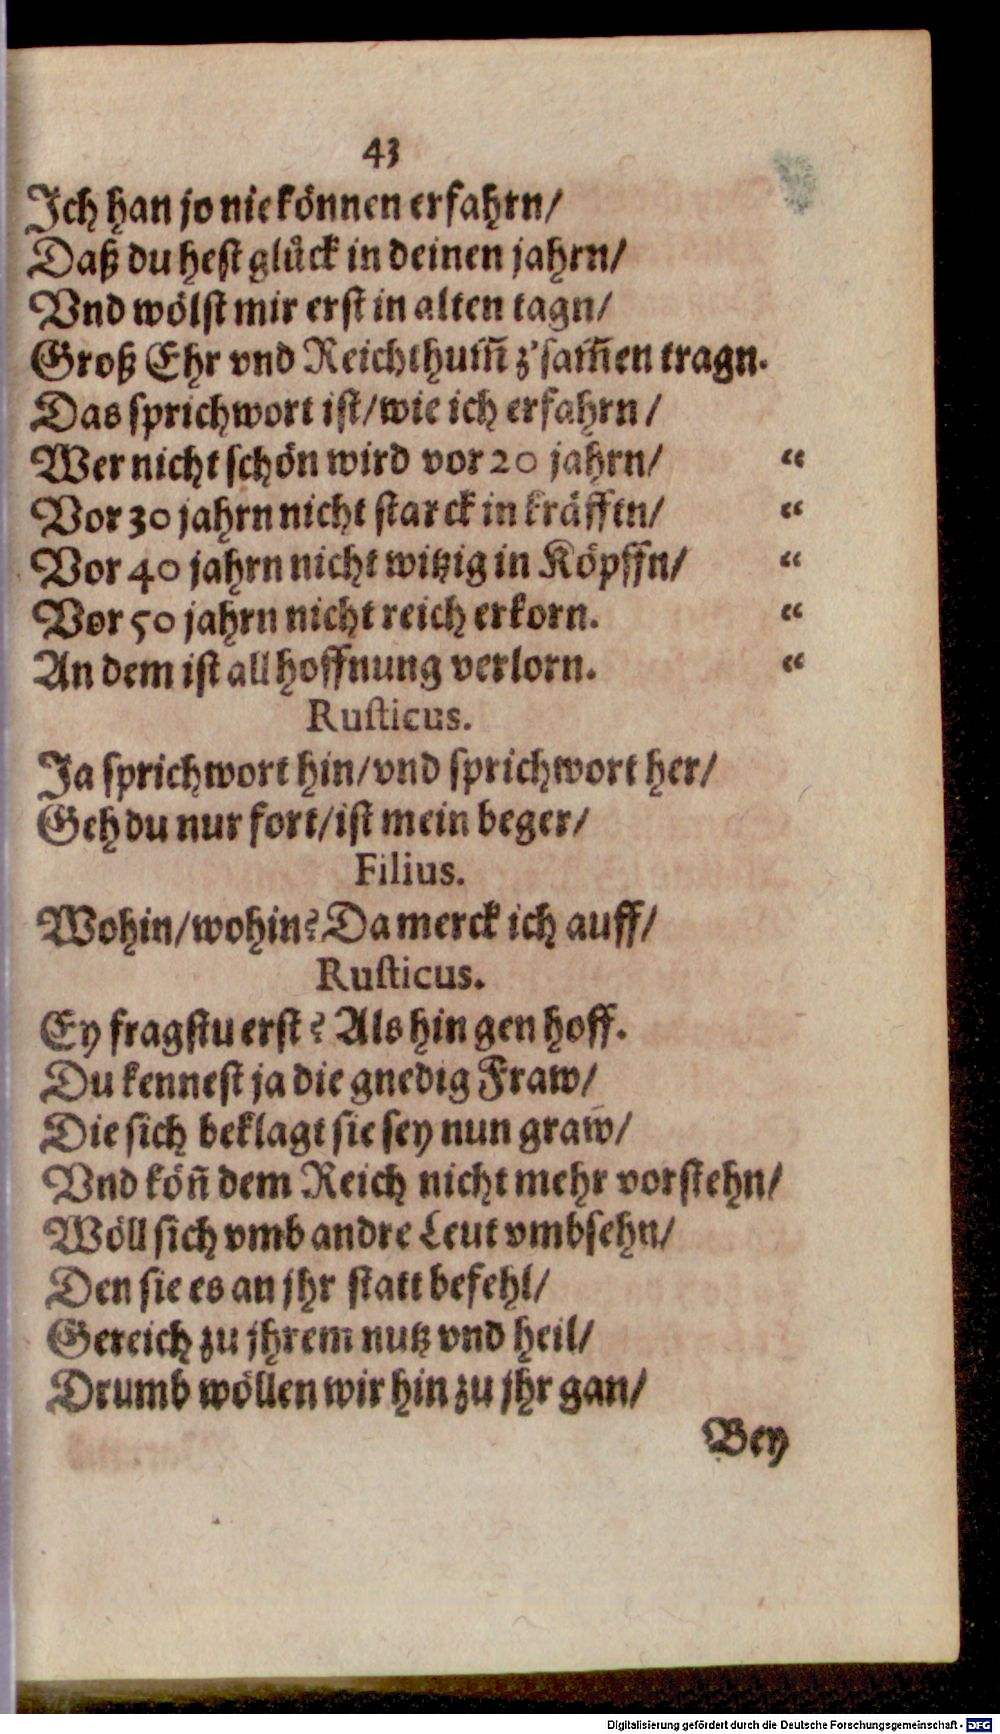 43
Ich han jo nie können erfahrn/
Daß du hest glück in deinen jahrn/
Vnd wölst mir erst in alten tagn/
Groß Ehr vnd Reichthum̃ z'sam̃en tragn.
Das sprichwort ist/wie ich erfahrn/
Wer nicht schön wird vor 20 jahrn/ “
Vor 30 jahrn nicht starck in kräfftn/ “
Vor 40 jahrn nicht witzig in Köpffn/ “
Vor 50 jahrn nicht reich erkorn. “
An dem ist all hoffnung verlorn. “
Rusticus.
Ja sprichwort hin/vnd sprichwort her/
Geh du nur fort/ist mein beger/
Filius.
Wohin/wohin? Da merck ich auff/
Rusticus.
Ey fragstu erst? Als hin gen hoff.
Du kennest ja die gnedig Fraw/
Die sich beklagt sie sey nun graw/
Vnd köñ dem Reich nicht mehr vorstehn/
Wöll sich vmb andre Leut vmbsehn/
Den sie es an jhr statt befehl/
Gereich zu jhrem nutz vnd heil/
Drumb wöllen wir hin zu jhr gan/
Bey
Digitalisierung gefördert durch die Deutsche Forschungsgemeinschaft - DFG